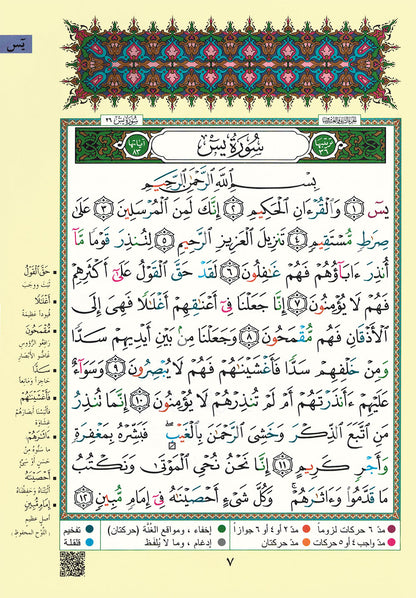 يسٓ
الجزء الثاني والعشرون
سُورَةُ يسٓ ٣٦
ترتيبها ٣٦
سُورَةُ يسٓ
آياتها ٨٣
بِسْمِ ٱللَّهِ ٱلرَّحْمَٰنِ ٱلرَّحِيمِ
يسٓ ١ وَٱلْقُرْءَانِ ٱلْحَكِيمِ ٢ إِنَّكَ لَمِنَ ٱلْمُرْسَلِينَ ٣ عَلَىٰ
صِرَٰطٍ مُّسْتَقِيمٍ ٤ تَنزِيلَ ٱلْعَزِيزِ ٱلرَّحِيمِ ٥ لِتُنذِرَ قَوْمًا مَّآ
أُنذِرَ ءَابَآؤُهُمْ فَهُمْ غَٰفِلُونَ ٦ لَقَدْ حَقَّ ٱلْقَوْلُ عَلَىٰٓ أَكْثَرِهِمْ
فَهُمْ لَا يُؤْمِنُونَ ٧ إِنَّا جَعَلْنَا فِىٓ أَعْنَٰقِهِمْ أَغْلَٰلًا فَهِىَ إِلَى
ٱلْأَذْقَانِ فَهُم مُّقْمَحُونَ ٨ وَجَعَلْنَا مِنۢ بَيْنِ أَيْدِيهِمْ سَدًّا
وَمِنْ خَلْفِهِمْ سَدًّا فَأَغْشَيْنَٰهُمْ فَهُمْ لَا يُبْصِرُونَ ٩ وَسَوَآءٌ
عَلَيْهِمْ ءَأَنذَرْتَهُمْ أَمْ لَمْ تُنذِرْهُمْ لَا يُؤْمِنُونَ ١٠ إِنَّمَا تُنذِرُ
مَنِ ٱتَّبَعَ ٱلذِّكْرَ وَخَشِىَ ٱلرَّحْمَٰنَ بِٱلْغَيْبِ ۖ فَبَشِّرْهُ بِمَغْفِرَةٍ
وَأَجْرٍ كَرِيمٍ ١١ إِنَّا نَحْنُ نُحْىِ ٱلْمَوْتَىٰ وَنَكْتُبُ
مَا قَدَّمُوا۟ وَءَاثَٰرَهُمْ ۚ وَكُلَّ شَىْءٍ أَحْصَيْنَٰهُ فِىٓ إِمَامٍ مُّبِينٍ ١٢
حَقَّ ٱلْقَوْلُ
ثبت ووجب
أَغْلَٰلًا
قيوداً عظيمة
مُّقْمَحُونَ
رافعو الرؤوس
غاضّو الأبصار
سَدًّا
حاجزاً ومانعاً
فَأَغْشَيْنَٰهُمْ
فألبسنا أبصارهم
غشاوة
ءَاثَٰرَهُمْ
ما سنّوه من
حسن أو سيّئ
أَحْصَيْنَٰهُ
أثبتناه وحفظناه
إِمَامٍ مُّبِينٍ
أصل عظيم
(اللوح المحفوظ)
مدّ ٦ حركات لزوماً
مدّ ٢ أو ٤ أو ٦ جوازاً
إخفاء، ومواقع الغُنَّة (حركتان)
تفخيم
مدّ واجب ٤ أو ٥ حركات
مدّ حركتان
إدغام، وما لا يُلفَظ
قلقلة
٧